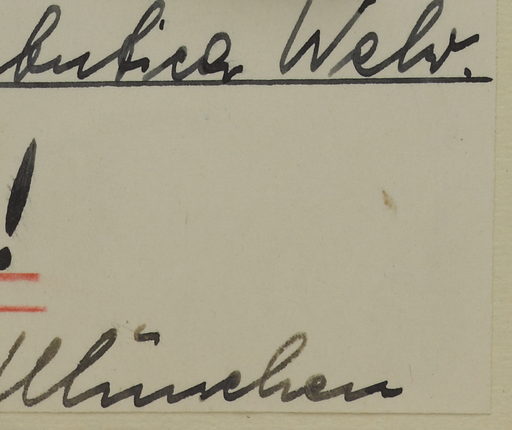 butica Welw.
!
München